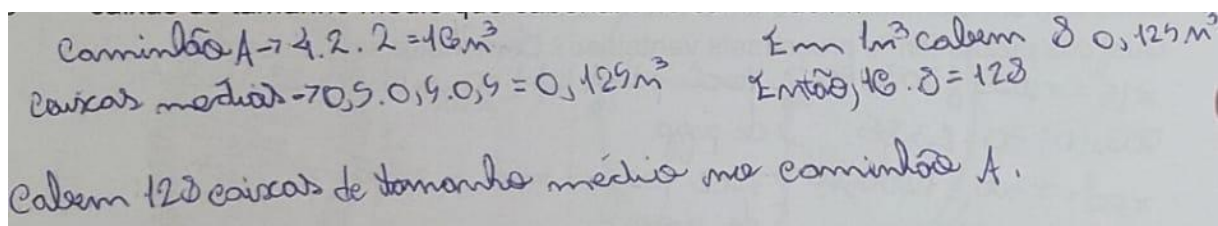 Caminhão A → 4.2.2 = 16m³
Em 1m³ cabem 8 0,125m³
caixas médias → 0,5.0,5.0,5 = 0,125m³
Então, 16.8 = 128
Cabem 128 caixas de tamanho médio no caminhão A.